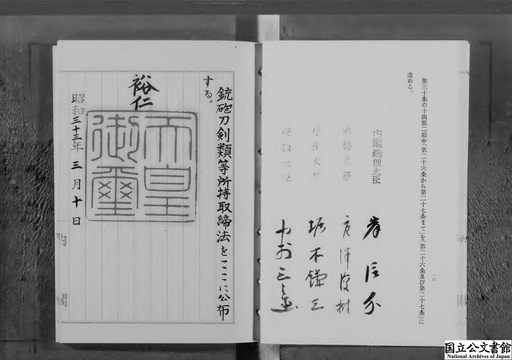 第三十条の十四第二項中「第二十六条から第二十七条まで」を「第二十六条及び第二十七条」に
改める。
内閣総理大臣 岸信介
法務大臣 唐澤俊樹
厚生大臣 堀木鎌三
銃砲刀剣類等所持取締法をここに公布
する。
裕仁
天皇
御璽
昭和三十三年三月十日
国立公文書館
National Archives of Japan